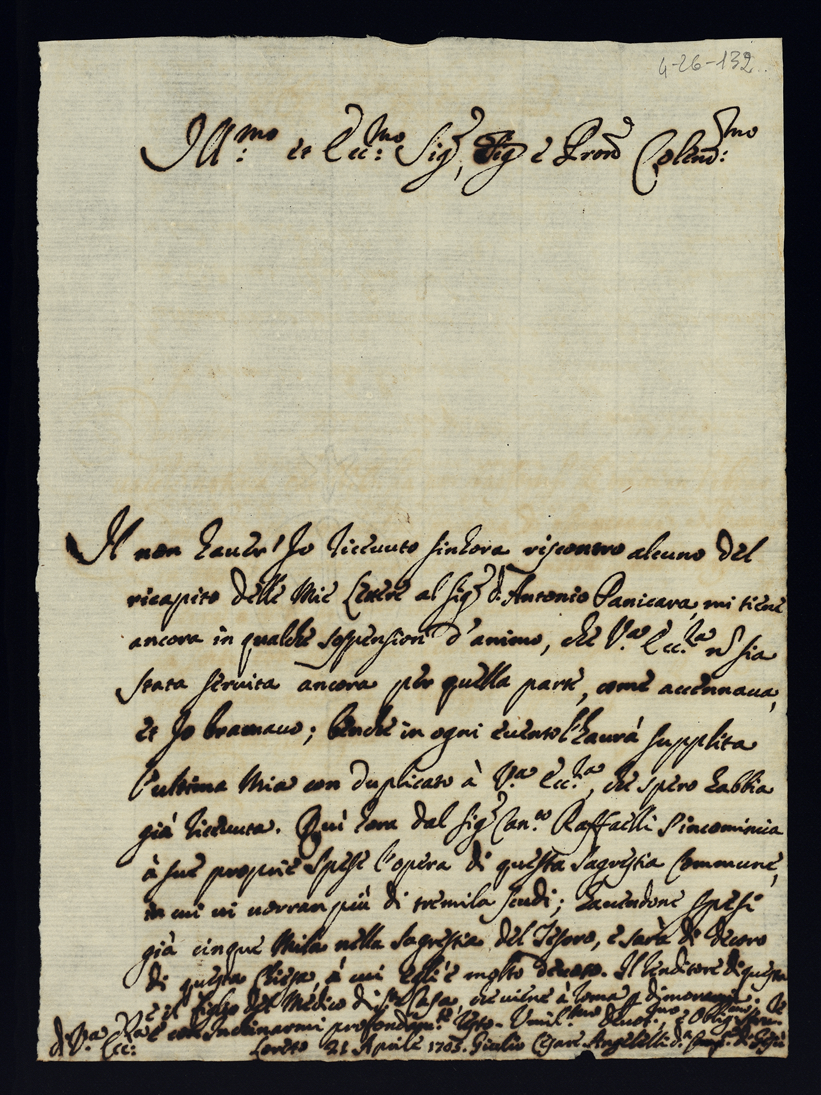 4-26-132
Ill:mo et Ecc:mo Sig.r, Sig.r e Pron Colend:mo
Il non haver' Io ricevuto sinhora riscontro alcuno del
ricapito delle Mie Lettere al Sig.r d. Antonio Panicara, mi tiene
ancora in qualche sospension d'animo, che V.a Ecc.za nō sia
stata servita ancora per quella parte, come accennava,
et Io bramavo; benche in ogni evento l'haurà supplita
l'ultima Mia con duplicato à V.a Ecc.za, che spero habbia
già ricevuta. Qui hora dal Sig.r Can.co Raffaelli s'incomincia
à sue proprie spese l'opera di questa Sagrestia Commune,
in cui vi verran più di tremila scudi; havendone spesi
già cinque Mila nella Sagrestia del Tesoro, e sarà di decoro
di questa Chiesa, à cui Egli è molto devoto. Il Lenditore di questa
è il figlio del Medico di S.ta Casa, che viene à Roma
e con Inclinarmi profondam.te resto. Umil.mo Devot.mo e Oblig.mo
di V.a Ecc:
Loreto 21 Aprile 1705. Giulio Cesare Angelelli d.a Comp.a di Giesù